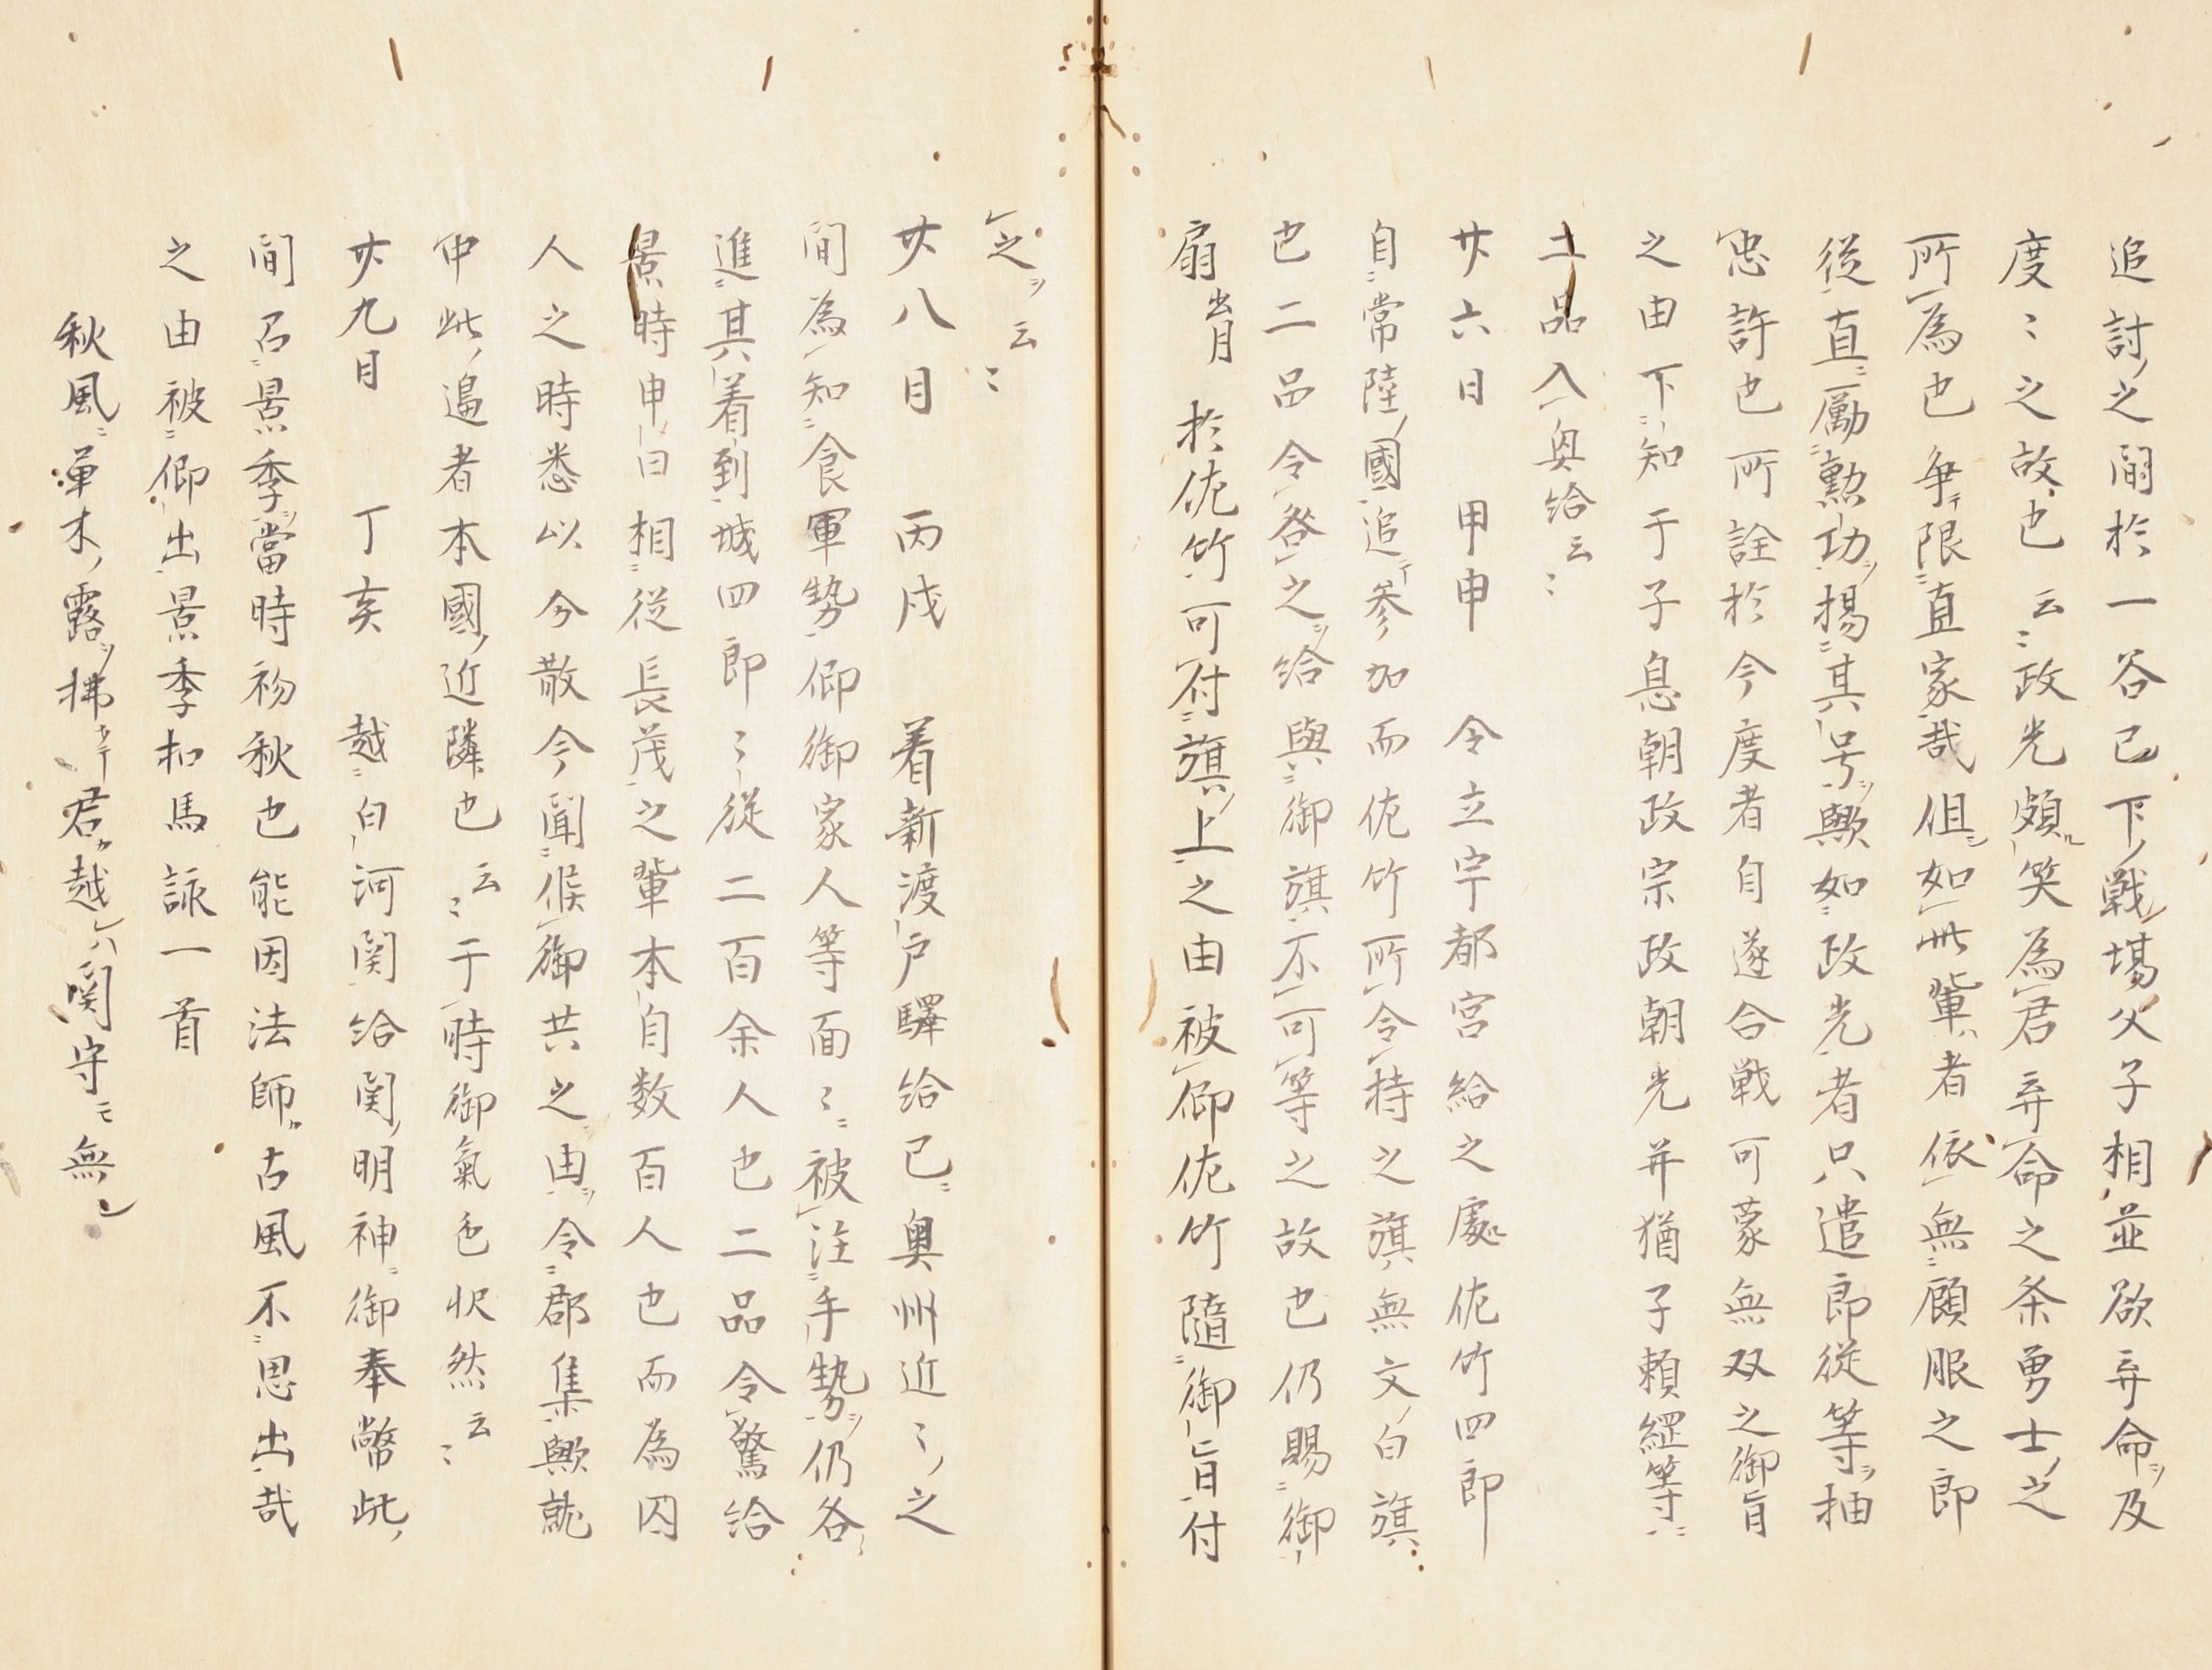 追討之間於一谷已下戦場父子相並欲弃命及
度々之故也云々政光頗笑為君弃命之条勇士之
所為也争限直家哉但如此輩者依無顧眼之郎
從直励勲功揚其号歟如政光者只遣郎従等抽
忠許也所詮於今度者自遂合戦可蒙無双之御旨
之由下知于子息朝政宗政朝光并猶子頼綱等
二品入奥給云々
廿六日　甲申　令立宇都宮給之處佐竹四郎
自常陸國追参加而佐竹所令持之旗無文白旗
也二品令咎之給與御旗不可等之故也仍賜御
扇出月於佐竹可付旗上之由被仰佐竹随御旨付
之云々
廿八日　丙戌　着新渡戸驛給已奥州近々之
間為知食軍勢仰御家人等面々被注手勢仍各
進其着到城四郎々従二百余人也二品令驚給
景時申曰相従長茂之輩本自数百人也而為囚
人之時悉以分散今聞候御共之由令郡集歟就
中此邉者本國近隣也云々于時御氣色快然云々
廿九日　丁亥　越白河関給関明神御奉幣此
間召景季當時初秋也能因法師古風不思出哉
之由被仰出景季扣馬詠一首
秋風ニ草木ノ露ヲ拂セテ君カ越レハ関守モ無シ